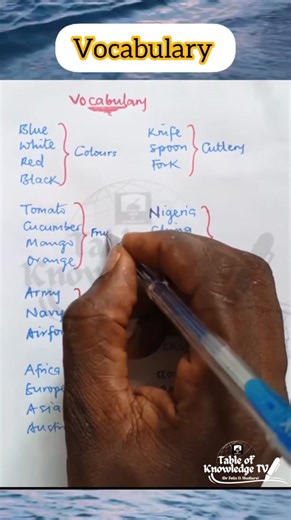 Vocabulary
Vocabulary
Blue
White
Red
Black
Colours
Knife
Spoon
Fork
Cutlery
Tomato
Cucumber
Mango
Orange
Nigeria
Army
Navy
Africa
Europe
Asia
Table of
Knowledge TV